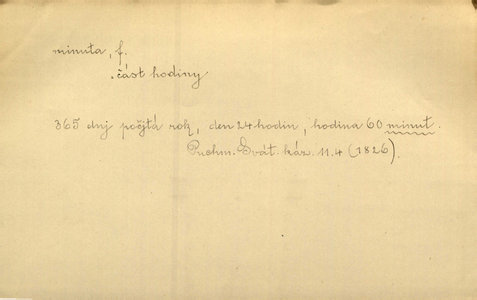 minuta, f.
část hodiny
365 dnj počjtá rok, den 24 hodin, hodina 60 minut.
Puchm. Svát. káz. 11.4 (1826).